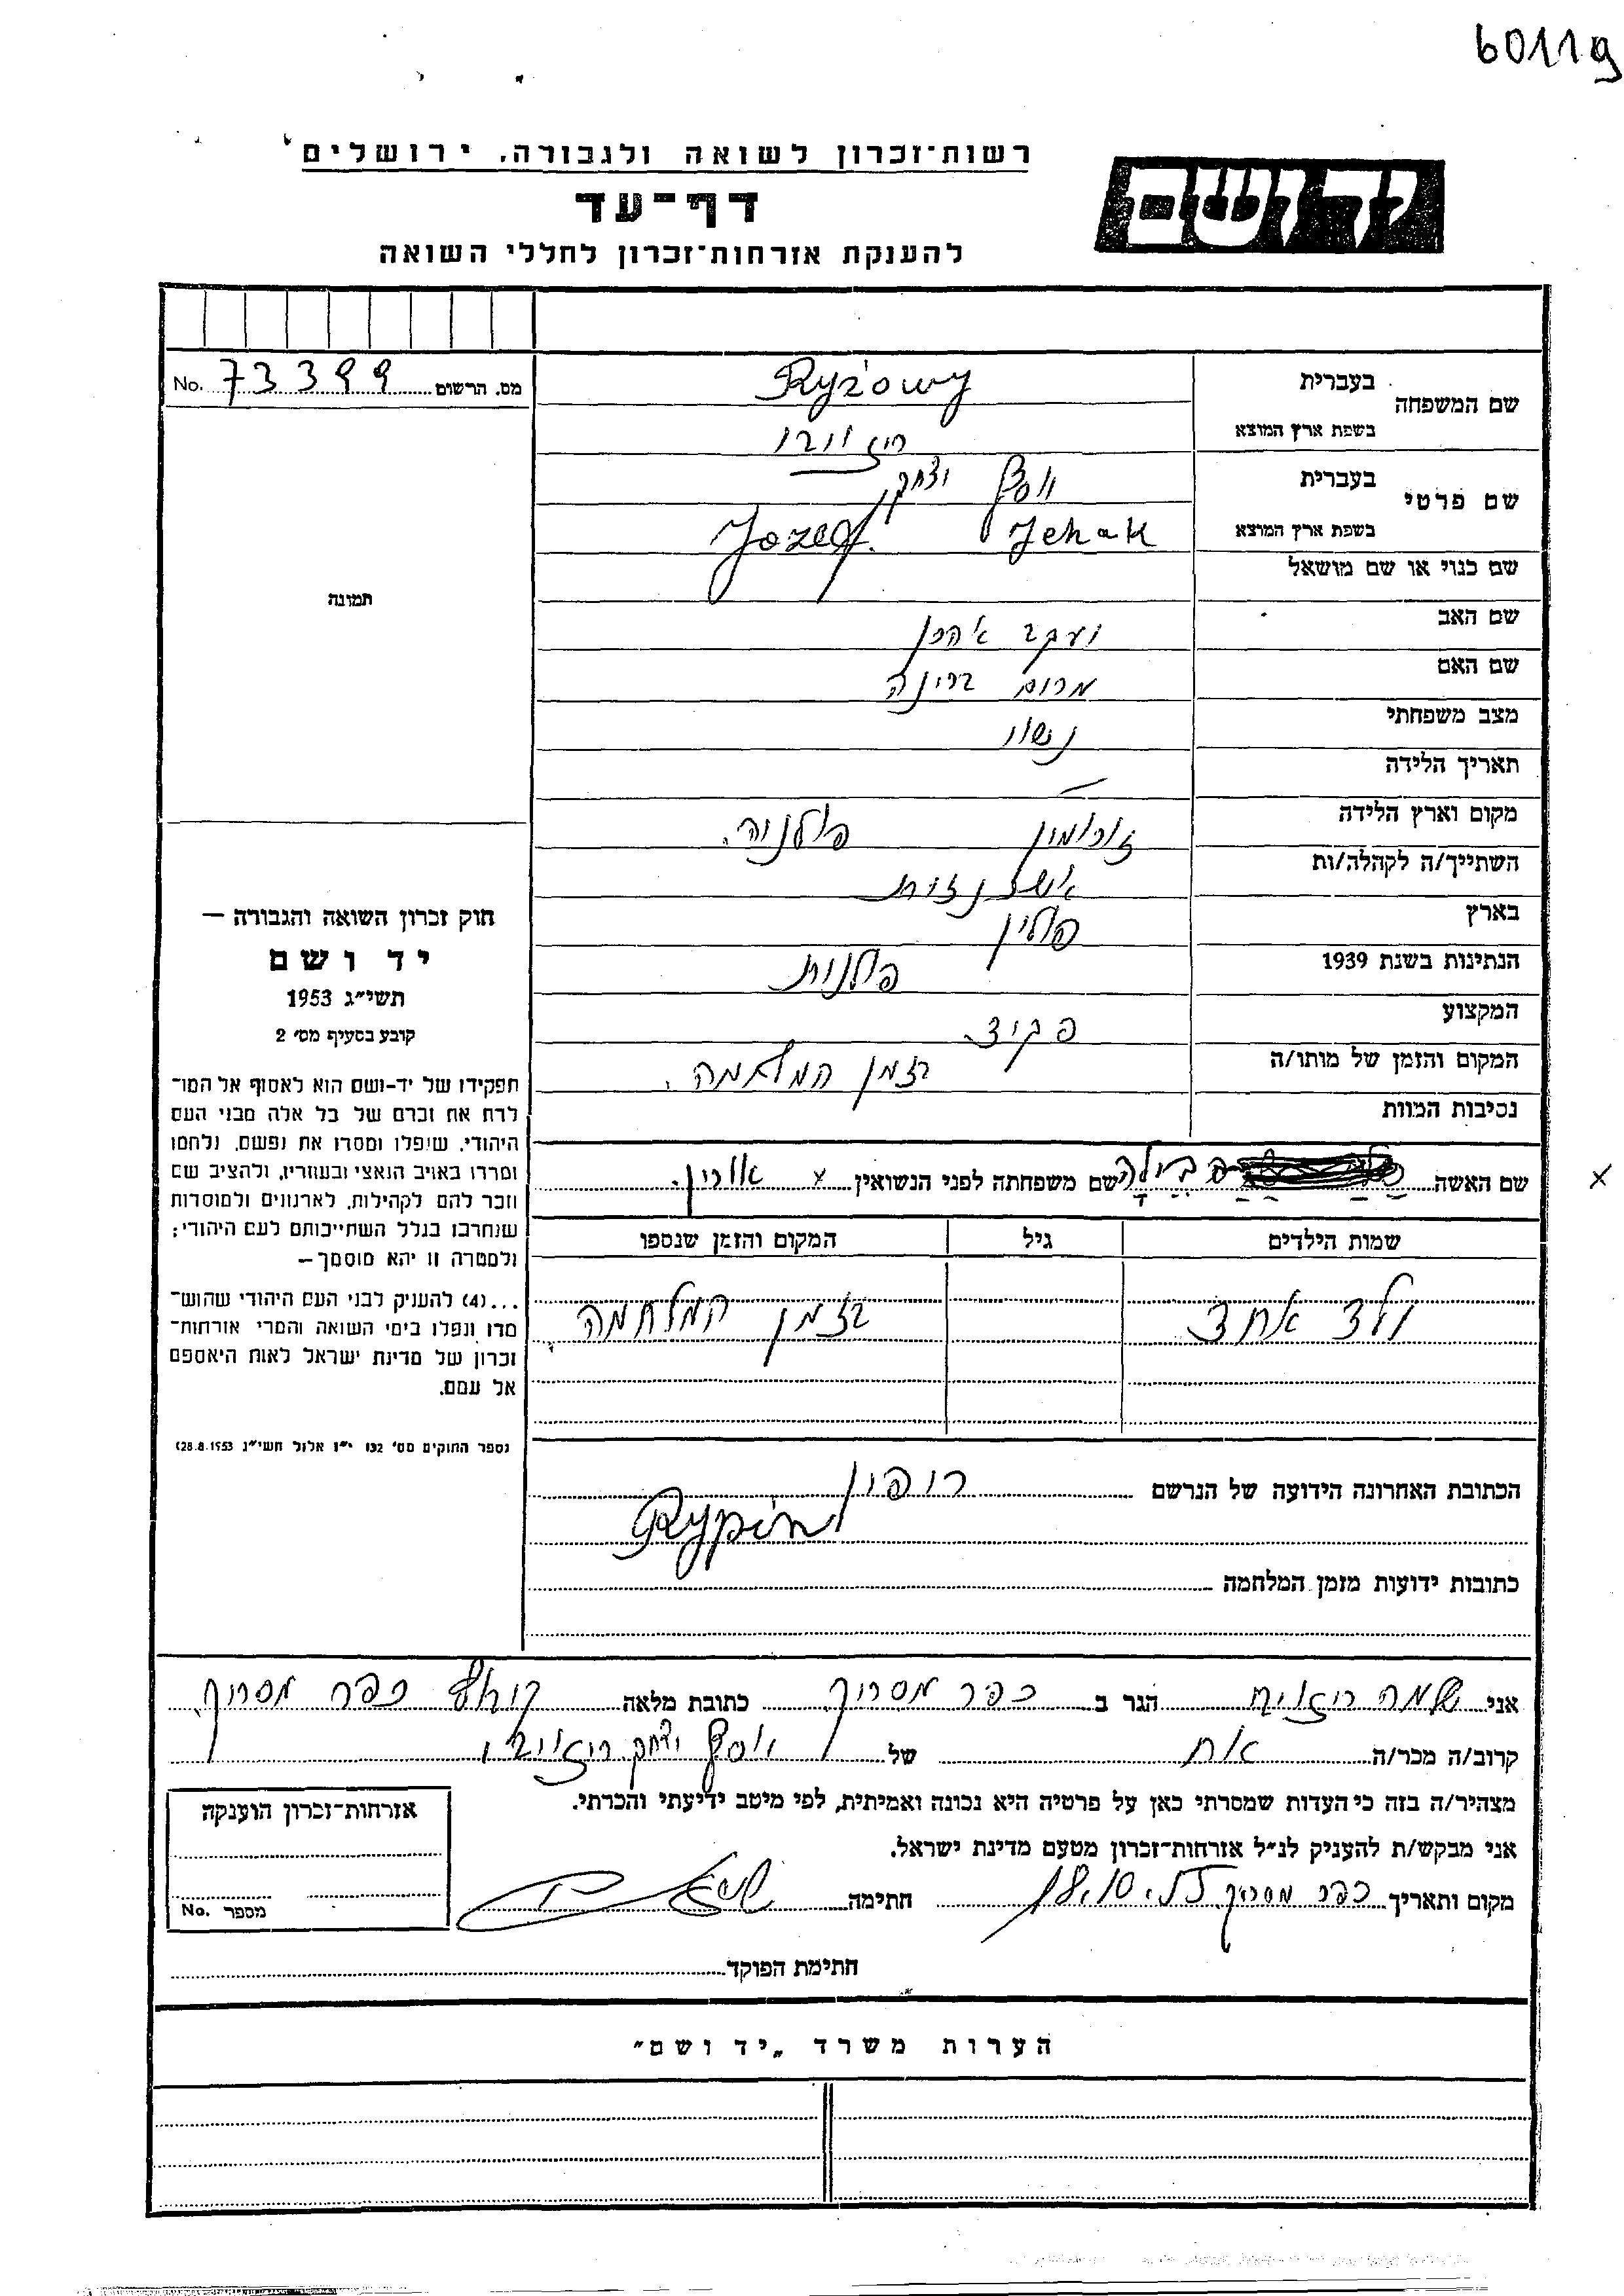 60119
רשות־זכרון לשואה ולגבורה, ירושלים
יד ושם
דף־עד
להענקת אזרחות־זכרון לחללי השואה
מס. הרשום 73399 No.
תמונה
שם המשפחה בעברית Ryżowy
בשפת ארץ המוצא
שם פרטי בעברית יוסף יצחק
בשפת ארץ המוצא Józef
שם כנוי או שם מושאל
שם האב יעקב
שם האם
מצב משפחתי נשוי
תאריך הלידה —
מקום וארץ הלידה פולניה.
השתייך/ה לקהלה/ות
בארץ פולין
הנתינות בשנת 1939 פולנית
המקצוע פקיד.
המקום והזמן של מותו/ה בזמן המלחמה.
נסיבות המוות
שם האשה שם משפחתה לפני הנשואין x
x
שמות הילדים גיל המקום והזמן שנספו
ילד אחד בזמן המלחמה.
הכתובת האחרונה הידועה של הנרשם ריפין
Rypin
כתובות ידועות מזמן המלחמה
חוק זכרון השואה והגבורה —
יד ושם
תשי״ג 1953
קובע בסעיף מס׳ 2
תפקידו של יד-ושם הוא לאסוף אל המו־
לדת את זכרם של כל אלה מבני העם
היהודי, שנפלו ומסרו את נפשם, נלחמו
ומרדו באויב הנאצי ובעוזריו, ולהציב שם
וזכר להם לקהילות, לארגונים ולמוסדות
שנחרבו בגלל השתייכותם לעם היהודי;
ולמטרה זו יהא מוסמך —
...(4) להעניק לבני העם היהודי שהוש־
מדו ונפלו בימי השואה והמרי אזרחות־
זכרון של מדינת ישראל לאות היאספם
אל עמם.
(ספר החוקים מס׳ 132 י״ז אלול תשי״ג 28.8.1953)
אני שלמה הגר ב כפר מסריק כתובת מלאה קיבוץ כפר מסריק
קרוב/ה מכר/ה אח של יוסף יצחק
מצהיר/ה בזה כי העדות שמסרתי כאן על פרטיה היא נכונה ואמיתית, לפי מיטב ידיעתי והכרתי.
אני מבקש/ת להעניק לנ״ל אזרחות־זכרון מטעם מדינת ישראל.
מקום ותאריך כפר מסריק חתימה
אזרחות־זכרון הוענקה
מספר No.
חתימת הפוקד
הערות משרד „יד ושם״